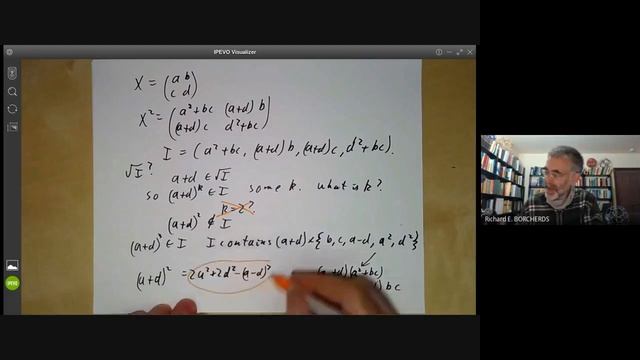 IPEVO Visualizer
X = (a b
c d)
X² = (a²+bc (a+d)b
(a+d)c d²+bc)
I = (a²+bc, (a+d)b, (a+d)c, d²+bc).
√I? a+d ∈ √I
so (a+d)ᵏ ∈ I some k. what is k?
k=2?
(a+d)² ∉ I
(a+d)³ ∈ I I contains (a+d)×{b, c, a-d, a², d²}
(a+d)² = 2a²+2d²-(a-d)² (a+d)(a²+bc)
bc
IPEVO
Richard E. BORCHERDS